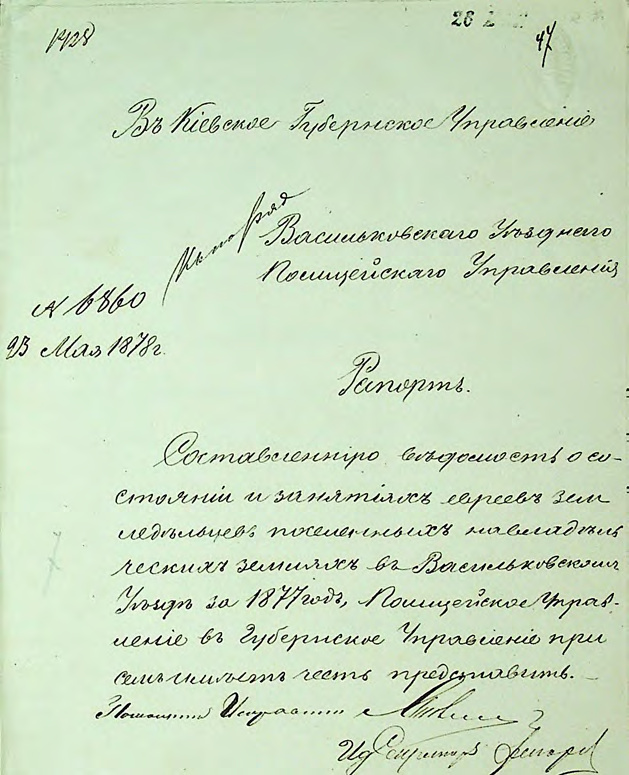 1428
26
47
Въ Кіевское Губернское Управленіе
Васильковскаго Уѣзднаго
Полицейскаго Управленія
№ 6860
23 Мая 1878 г.
Рапортъ.
Составленную вѣдомость о со-
стояніи и занятіяхъ евреевъ зем
ледѣльцевъ поселенныхъ на владѣль
ческихъ земляхъ въ Васильковскомъ
Уѣздѣ за 1877 годъ, Полицейское Управ-
леніе въ Губернское Управленіе при
семъ имѣетъ честь представить.
Помощникъ Исправника
Ид Секретаря